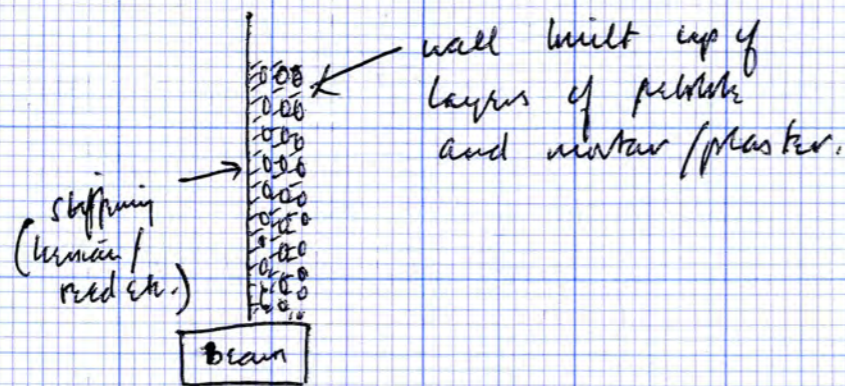 wall built up of
layers of pebble
and mortar/plaster.
stiffening
(hessian/
reed etc.)
beam